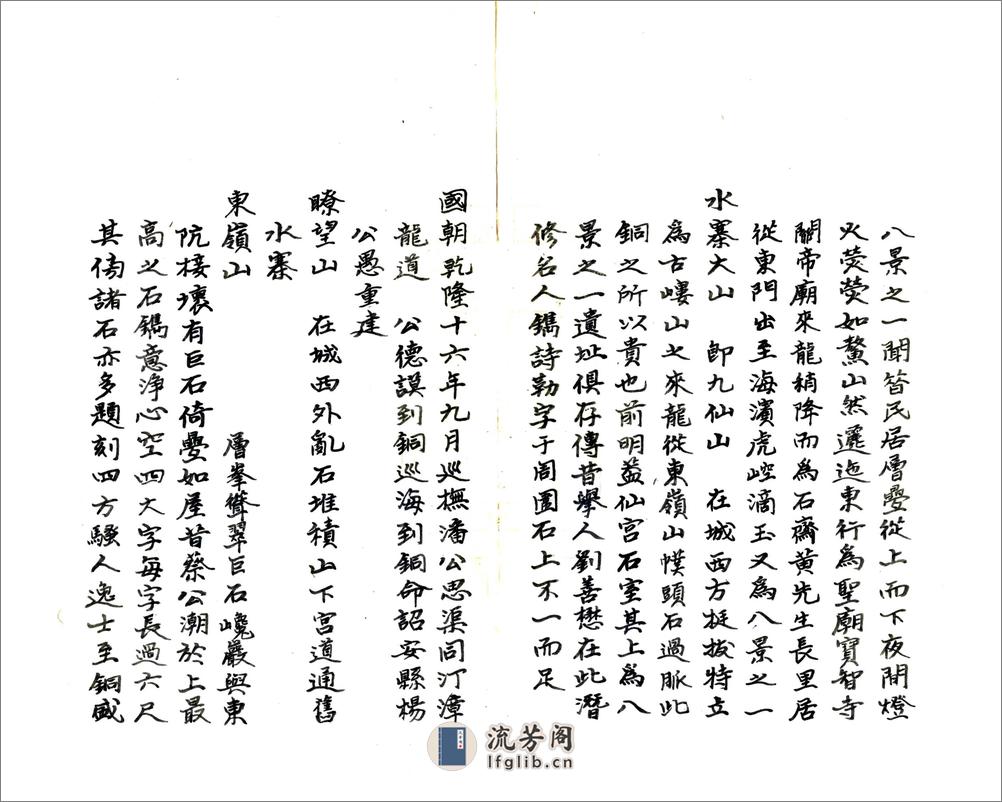 八景之一聞皆民居層疊從上而下夜間燈
火熒熒如鰲山然邐迤東行為聖廟寶智寺
關帝廟來龍稍降而為石齋黃先生長里居
從東門出至海濱虎崆滴玉又為八景之一
水寨大山　即九仙山　在城西方挺拔特立
為古嶁山之來龍從東嶺山幞頭石過脈此
銅之所以貴也前明蓋仙宮石室其上為八
景之一遺址俱存傳昔舉人劉善懋在此潛
修名人鐫詩勒字于周圍石上不一而足
國朝乾隆十六年九月巡撫潘公思渠同汀漳
龍道　公德謨到銅巡海到銅命詔安縣楊
公愚重建
瞭望山　在城西外亂石堆積山下宮道通舊
水寨
東嶺山　層峯聳翠巨石巉巖與東
阬接壞有巨石倚疊如屋昔蔡公潮於上最
高之石鐫意淨心空四大字每字長過六尺
其傍諸石亦多題刻四方騷人逸士至銅咸
流芳阁
lfglib.cn